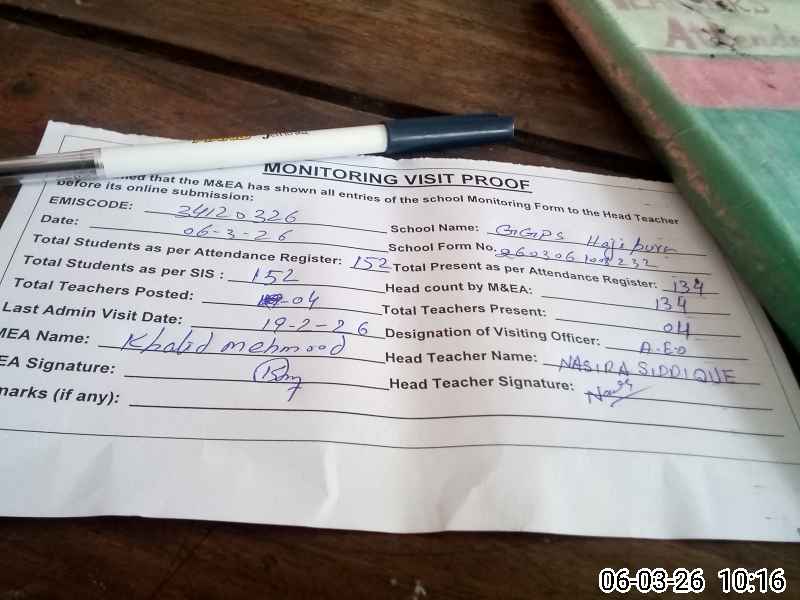 MONITORING VISIT PROOF
that the M&EA has shown all entries of the school Monitoring Form to the Head Teacher
before its online submission:
EMISCODE: 34120326
School Name: GGPS Hajipura
Date: 06-3-26
School Form No.
Total Students as per Attendance Register: 152
Total Present as per Attendance Register: 134
Total Students as per SIS : 152
Head count by M&EA: 134
Total Teachers Posted: 04
Total Teachers Present: 04
Last Admin Visit Date: 19-2-26
Designation of Visiting Officer: A.E.O
MEA Name: Khalid mehmood
Head Teacher Name: NASIRA SIDDIQUE
EA Signature:
Head Teacher Signature:
marks (if any):
06-03-26 10:16